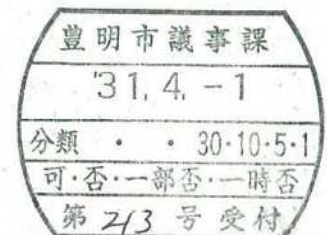 豊明市議事課
'31.4.-1
分類 ・ ・ 30・10・5・1
可・否・一部否・一時否
第 213 号 受付